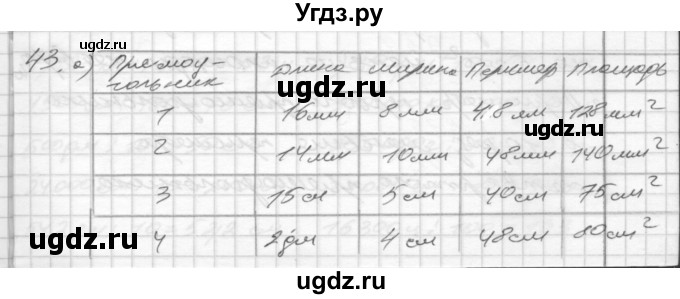 Угдз.ру
43. а) Прямоу-
гольник Длина Ширина Периметр Площадь
1 16мм 8 мм 48 мм 128мм²
2 14мм 10мм 48мм 140мм²
3 15см 5 см 40см 75см²
4 2дм 4 см 48см 80см²
ugdz.ru
ugdz.ru
ugdz.ru
ugdz.ru
ugdz.ru
ugdz.ru
ugdz.ru